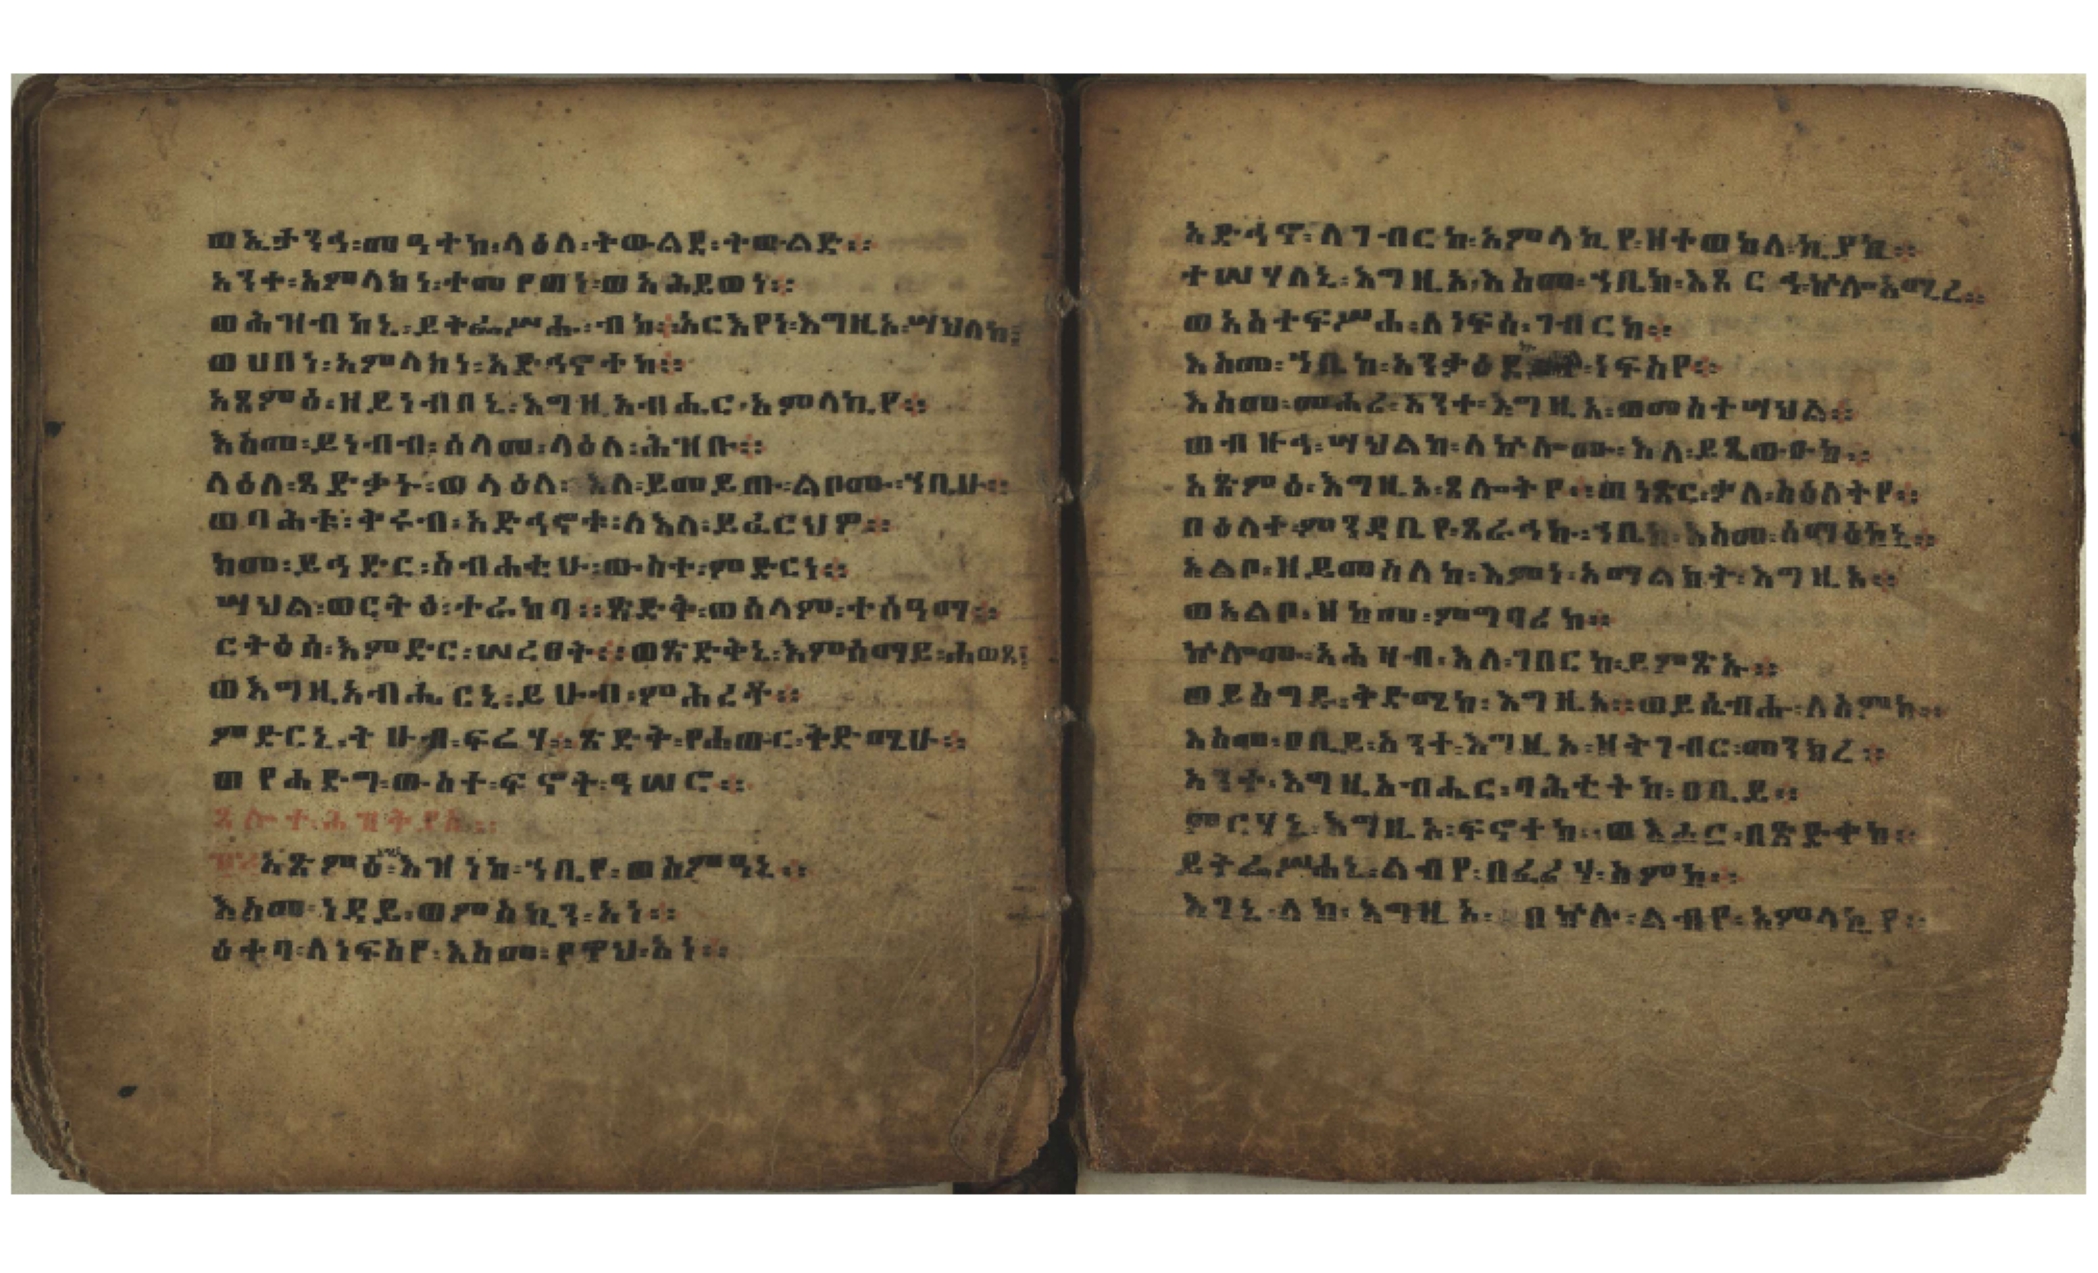 ወኢታንኃ፡መዓተከ፡ላዕለ፡ትውልደ፡ትውልድ።
አንተ፡አምላክነ፡ተመየወነ፡ወአሕይወነ።
ወሕዝብከኒ፡ይትፌሥሑ፡ብከ።አርእየነ፡እግዚኦ፡ሣህለከ፤
ወሀበነ፡አምላክነ፡አድኅኖተከ።
አጸምዕ፡ዘይነብበኒ፡እግዚአብሔር፡አምላኪየ።
እስመ፡ይነብብ፡ሰላመ፡ላዕለ፡ሕዝቡ።
ላዕለ፡ጻድቃኑ፡ወላዕለ፡እለ፡ይመይጡ፡ልቦሙ፡ኀቤሁ።
ወባሕቱ፡ቅሩብ፡አድኅኖቱ፡ለእለ፡ይፈርህዎ።
ከመ፡ይኅድር፡ስብሐቲሁ፡ውስተ፡ምድርነ።
ሣህል፡ወርትዕ፡ተራከባ።ጽድቅ፡ወሰላም፡ተሰዓማ።
ርትዕሰ፡እምድር፡ሠረፀት።ወጽድቅኒ፡እምሰማይ፡ሐወጸ፤
ወእግዚአብሔርኒ፡ይሁብ፡ምሕረቶ።
ምድርኒ፡ትሁብ፡ፍሬሃ።ጽድቅ፡የሐውር፡ቅድሚሁ።
ወየሐድግ፡ውስተ፡ፍኖት፡ዓሠሮ።
ጸሎተ፡ሕዝቅያስ።
አጽምዕ፡እዝነከ፡ኀቤየ፡ወስምዓኒ።
እስመ፡ነዳይ፡ወምስኪን፡አነ።
ዕቀባ፡ለነፍስየ፡እስመ፡የዋህ፡አነ።
አድኅኖ፡ለገብርከ፡አምላኪየ፡ዘተወከለ፡ኪያከ።
ተሠሃለኒ፡እግዚኦ፡እስመ፡ኀቤከ፡እጸርኅ፡ኵሎ፡አሚረ።
ወአስተፍሥሐ፡ለነፍሰ፡ገብርከ።
እስመ፡ኀቤከ፡አንቃዕደውኩ፡ነፍስየ።
እስመ፡መሐሪ፡አንተ፡እግዚኦ፡ወመስተሣህል።
ወብዙኃ፡ሣህልከ፡ለኵሎሙ፡እለ፡ይጼውዑከ።
አጽምዕ፡እግዚኦ፡ጸሎትየ።ወነጽር፡ቃለ፡ስዕለትየ።
በዕለተ፡ምንዳቤየ፡ጸራኅኩ፡ኀቤከ፡እስመ፡ሰማዕከኒ።
አልቦ፡ዘይመስለከ፡እምነ፡አማልክት፡እግዚኦ።
ወአልቦ፡ዘከመ፡ምግባሪከ።
ኵሎሙ፡አሕዛብ፡እለ፡ገበርከ፡ይምጽኡ።
ወይሰግዱ፡ቅድሜከ፡እግዚኦ።ወይሴብሑ፡ለስምከ።
እስመ፡ዐቢይ፡አንተ፡እግዚኦ፡ዘትገብር፡መንክረ።
አንተ፡እግዚአብሔር፡ባሕቲትከ፡ዐቢይ።
ምርሃኒ፡እግዚኦ፡ፍኖተከ፡ወእሖር፡በጽድቅከ።
ይትፌሥሐኒ፡ልብየ፡በፈሪሃ፡ስምከ።
እገኒ፡ለከ፡እግዚኦ፡በኵሉ፡ልብየ፡አምላኪየ።